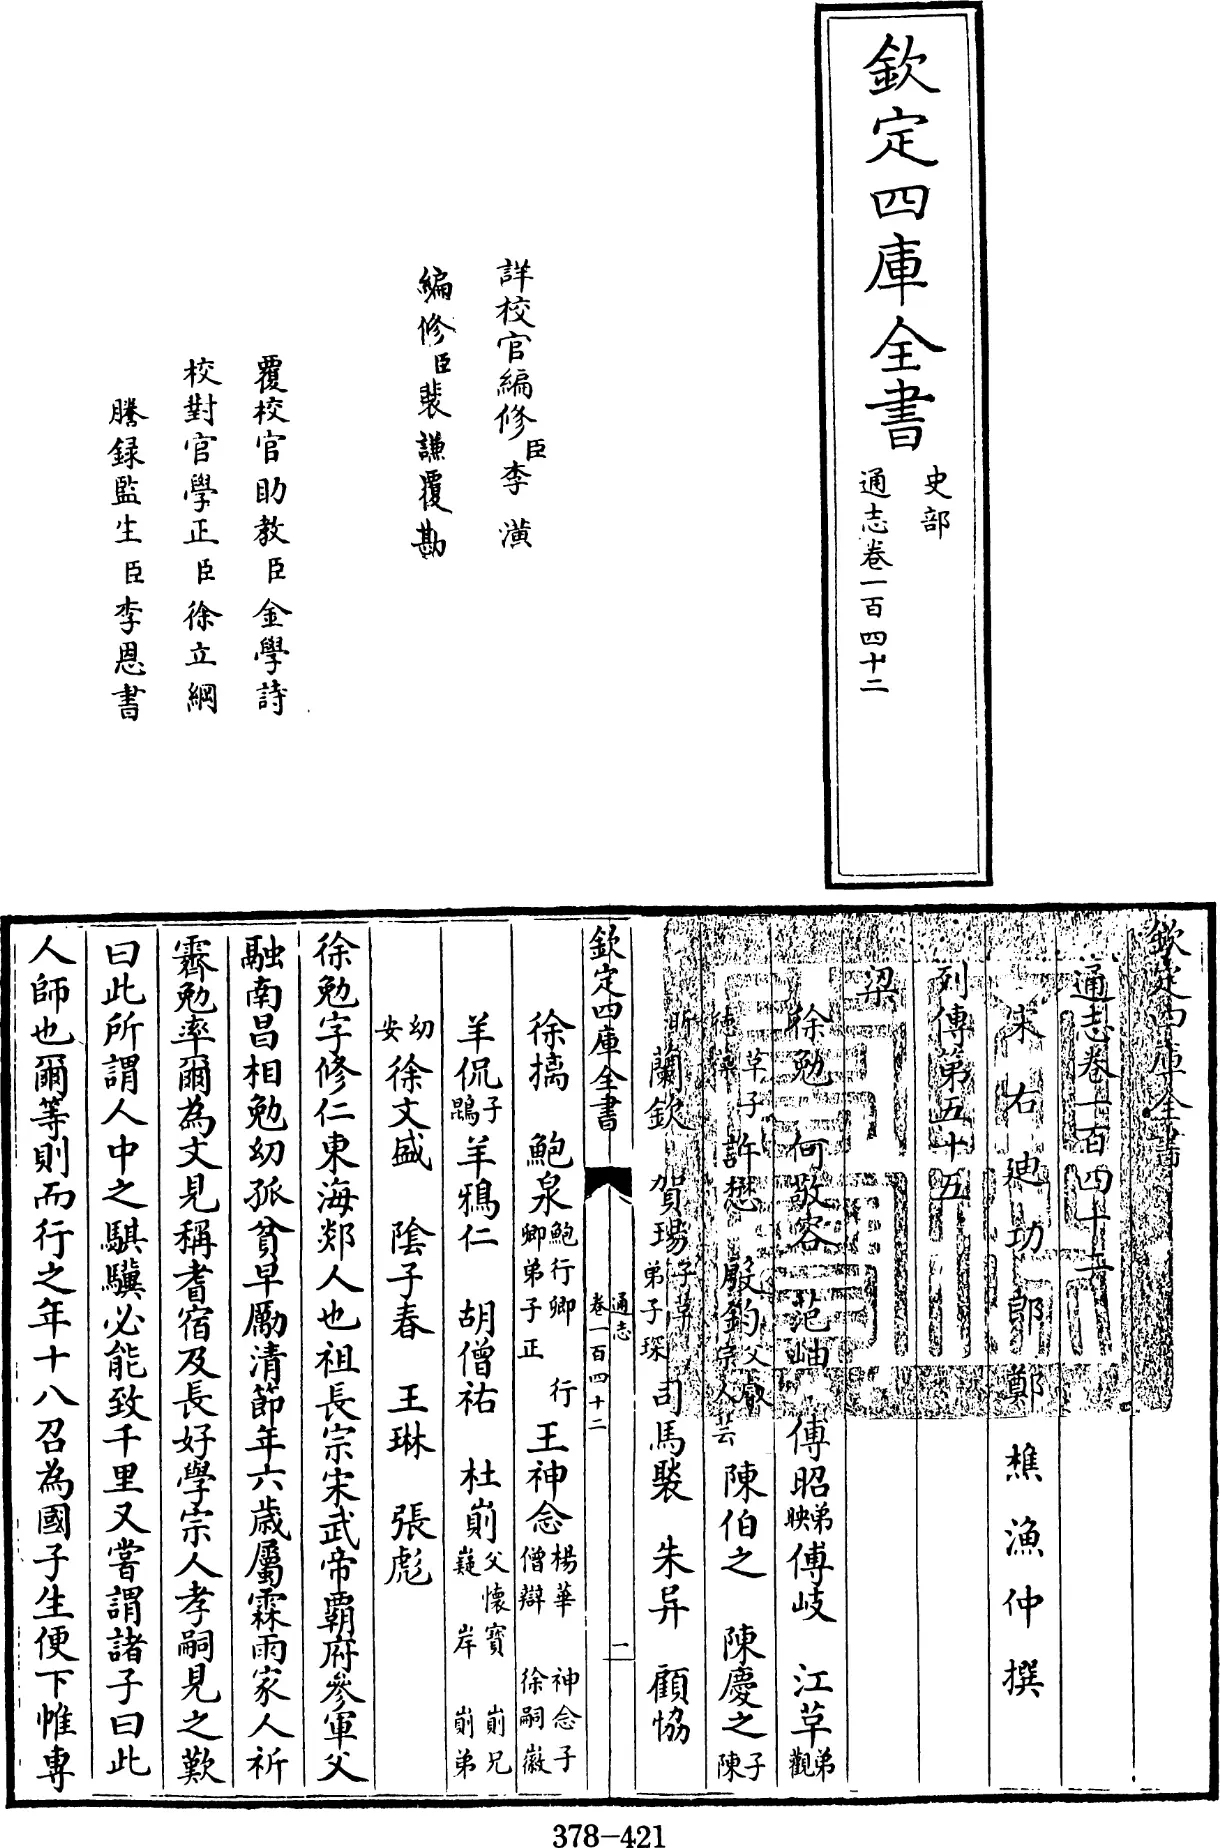 欽定四庫全書
史部
通志卷一百四十二
詳校官編修臣李潢
編修臣裴謙覆勘
覆校官助教臣金學詩
校對官學正臣徐立綱
謄録監生臣李恩書
欽定四庫全書
通志卷一百四十二
宋右迪功郎鄭樵漁仲撰
列傳第五十五
梁
徐勉 何敬容 范岫 傅昭弟映 傅岐 江革弟觀
革子德藻 許懋 殷鈞父叡宗人芸 陳伯之 陳慶之子陳
昕 蘭欽 賀瑒子革弟子琛 司馬褧 朱异 顧協
欽定四庫全書
通志
卷一百四十二
二
徐摛 鮑泉鮑行卿行卿弟子正 王神念楊華神念子僧辯徐嗣徽
羊侃子鵾 羊鴉仁 胡僧祐 杜崱父懷寶崱兄嶷岸崱弟
幼安 徐文盛 陰子春 王琳 張彪
徐勉字修仁東海郯人也祖長宗宋武帝霸府參軍父
融南昌相勉幼孤貧早勵清節年六歲屬霖雨家人祈
霽勉率爾為文見稱耆宿及長好學宗人孝嗣見之歎
曰此所謂人中之騏驥必能致千里又嘗謂諸子曰此
人師也爾等則而行之年十八召為國子生便下帷專
378-421